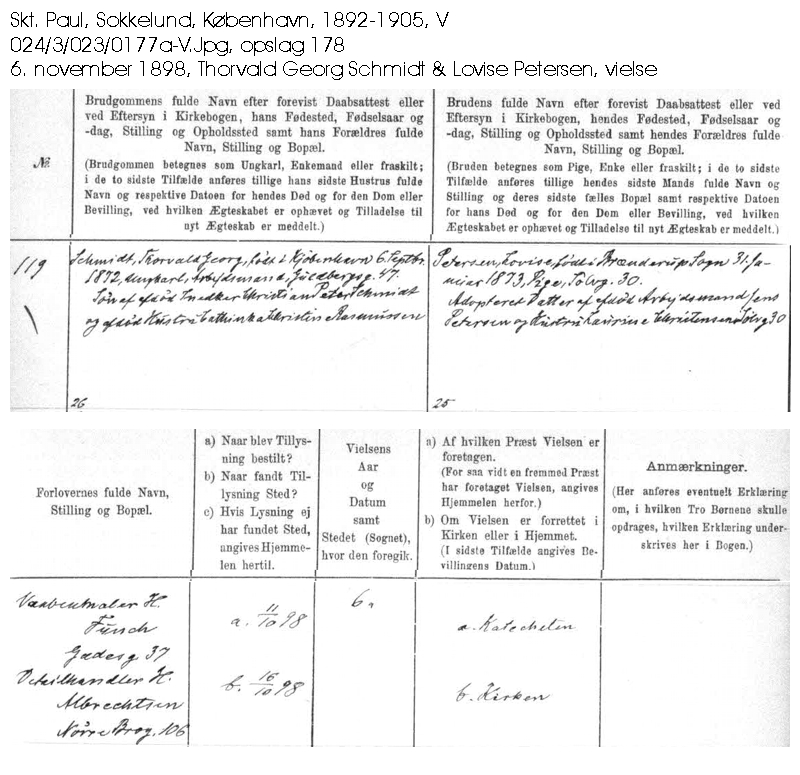 Skt. Paul, Sokkelund, København, 1892-1905, V
024/3/023/0177a-V.Jpg, opslag 178
6. november 1898, Thorvald Georg Schmidt & Lovise Petersen, vielse
№
Brudgommens fulde Navn efter forevist Daabsattest eller
ved Eftersyn i Kirkebogen, hans Fødested, Fødselsaar og
-dag, Stilling og Opholdssted samt hans Forældres fulde
Navn, Stilling og Bopæl.
(Brudgommen betegnes som Ungkarl, Enkemand eller fraskilt;
i de to sidste Tilfælde anføres tillige hans sidste Hustrus fulde
Navn og respektive Datoen for hendes Død og for den Dom eller
Bevilling, ved hvilken Ægteskabet er ophævet og Tilladelse til
nyt Ægteskab er meddelt.)
Brudens fulde Navn efter forevist Daabsattest eller ved
Eftersyn i Kirkebogen, hendes Fødested, Fødselsaar og
-dag, Stilling og Opholdssted samt hendes Forældres fulde
Navn, Stilling og Bopæl.
(Bruden betegnes som Pige, Enke eller fraskilt; i de to sidste
Tilfælde anføres tillige hendes sidste Mands fulde Navn og
Stilling og deres sidste fælles Bopæl samt respektive Datoen
for hans Død og for den Dom eller Bevilling, ved hvilken
Ægteskabet er ophævet og Tilladelse til nyt Ægteskab er meddelt.)
119
Schmidt, Thorvald Georg, født i Kjøbenhavn 6. Septbr.
1872, Ungkarl, Arbejdsmand, Guldbergsg. 47.
Søn af afdød Snedker Christian Peter Schmidt
og afdød Hustru Cathinka Christine Rasmussen
26
Petersen, Lovise, født i Brænderup Sogn 31. Ja-
nuar 1873, Pige, Sølvg. 30.
Adopteret Datter af afdød Arbejdsmand Jens
Petersen og Hustru Laurine Christensen Sølvg 30
25
Forlovernes fulde Navn,
Stilling og Bopæl.
a) Naar blev Tillys-
ning bestilt?
b) Naar fandt Til-
lysning Sted?
c) Hvis Lysning ej
har fundet Sted,
angives Hjemme-
len hertil.
Vielsens
Aar
og
Datum
samt
Stedet (Sognet),
hvor den foregik.
a) Af hvilken Præst Vielsen er
foretagen.
(For saa vidt en fremmed Præst
har foretaget Vielsen, angives
Hjemmelen herfor.)
b) Om Vielsen er forrettet i
Kirken eller i Hjemmet.
(I sidste Tilfælde angives Be-
villingens Datum.)
Anmærkninger.
(Her anføres eventuelt Erklæring
om, i hvilken Tro Børnene skulle
opdrages, hvilken Erklæring under-
skrives her i Bogen.)
Vaabenmaler H.
Funch
Gadesg 37
Detailhandler H.
Albrechtsen
Nørre Brog. 106
a. 11/10 98
b. 16/10 98
6.
a. Katecheten
b. Kirken